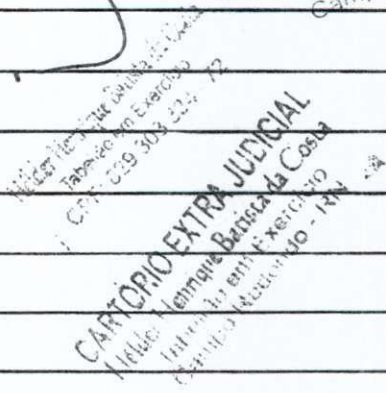 Camp
Helder Henrique Batista da Costa
Tabelião em Exercício
CPF: 029 303
CARTÓRIO EXTRA JUDICIAL
Helder Henrique Batista da Costa
Interino em Exercício
Campo Redondo - RN